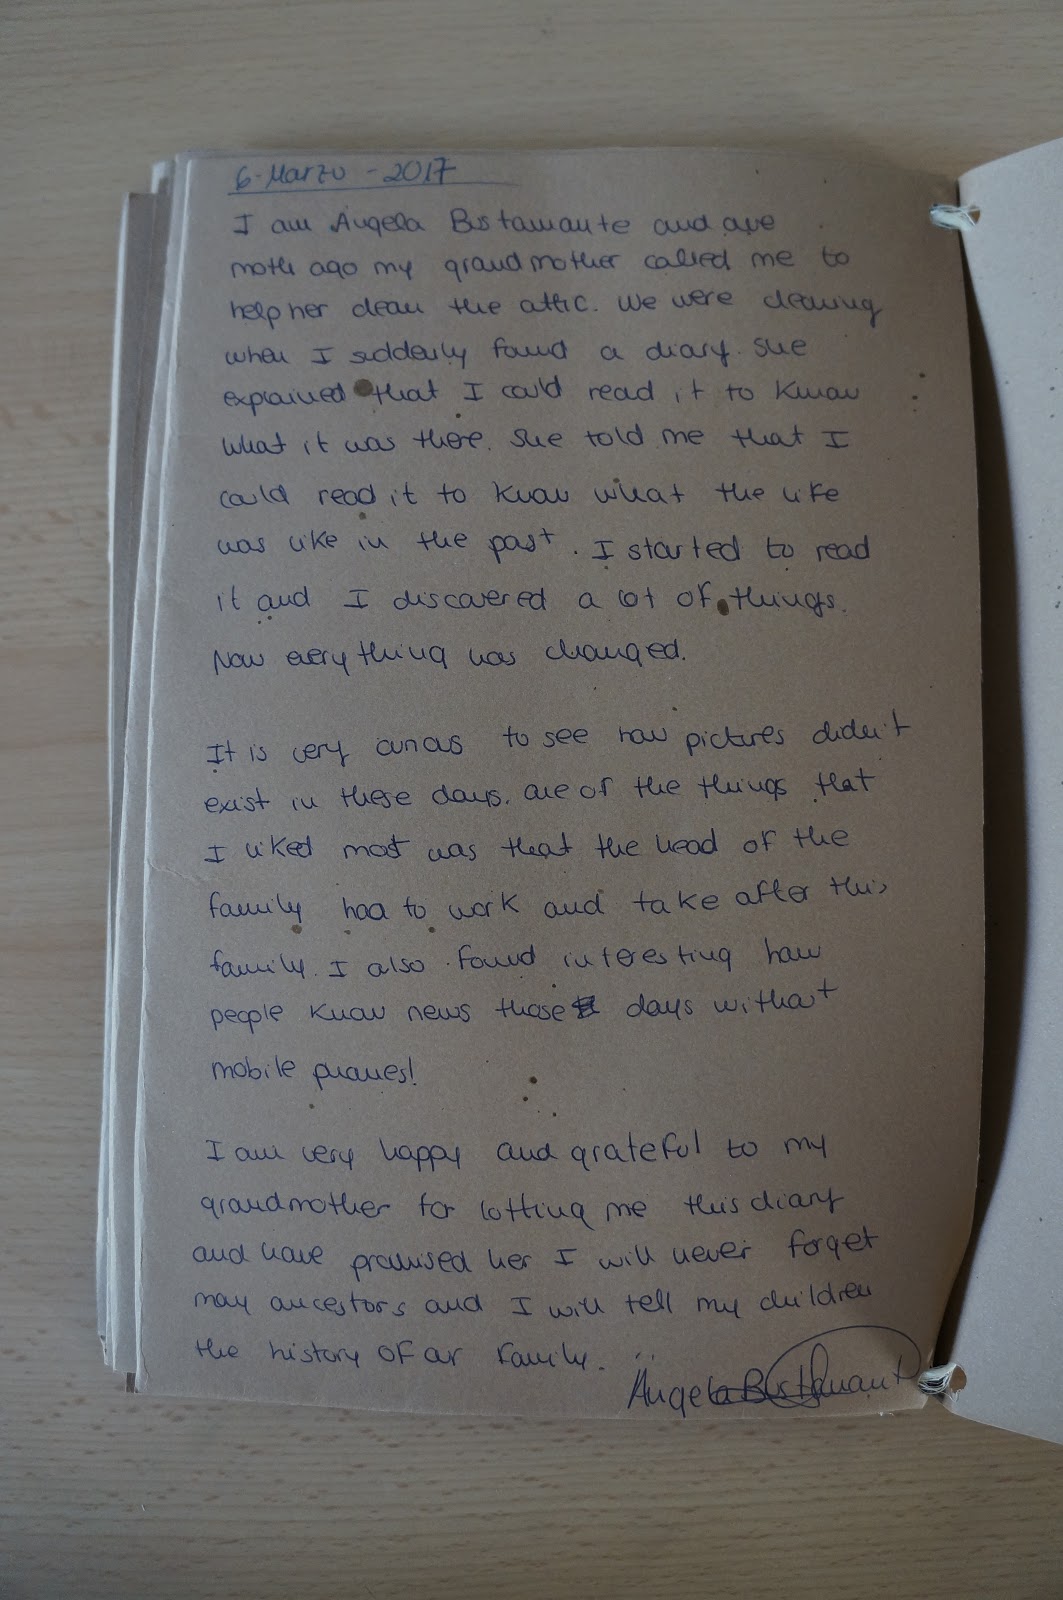 6-Marzo-2017
I am Ángela Bustamante and one
moth ago my grandmother called me to
help her clean the attic. We were cleaning
when I suddenly found a diary. She
explained that I could read it to know
what it was there. She told me that I
could read it to know what the life
was like in the past. I started to read
it and I discovered a lot of things.
Now everything was changed.
It is very curious to see how pictures didn't
exist in these days. One of the things that
I liked most was that the head of the
family had to work and take after this
family. I also found interesting how
people know news those days without
mobile phones!
I am very happy and grateful to my
grandmother for lotting me this diary
and have promised her I will never forget
may ancestors and I will tell my children
the history of our family.
Ángela Bustamante